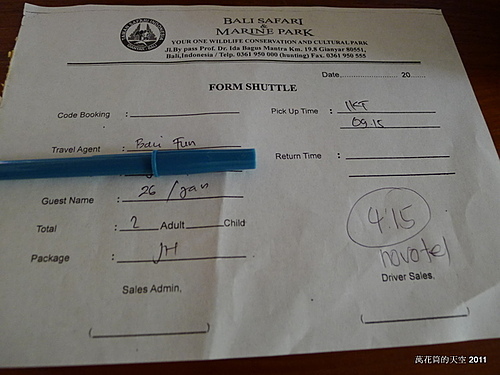 BALI SAFARI
&
MARINE PARK
YOUR ONE WILDLIFE CONSERVATION AND CULTURAL PARK
Jl.By pass Prof. Dr. Ida Bagus Mantra Km. 19.8 Gianyar 80551,
Bali,Indonesia / Telp. 0361 950 000 (hunting) Fax. 0361 950 555
Date.................... 20.....
FORM SHUTTLE
Code Booking :
Pick Up Time :
09.15
Travel Agent : Bali Fun
Return Time :
26 / Jan
Guest Name :
Total : 2 Adult Child
4.15
Package : JH
novotel
Sales Admin,
Driver Sales,
萬花筒的天空 2011